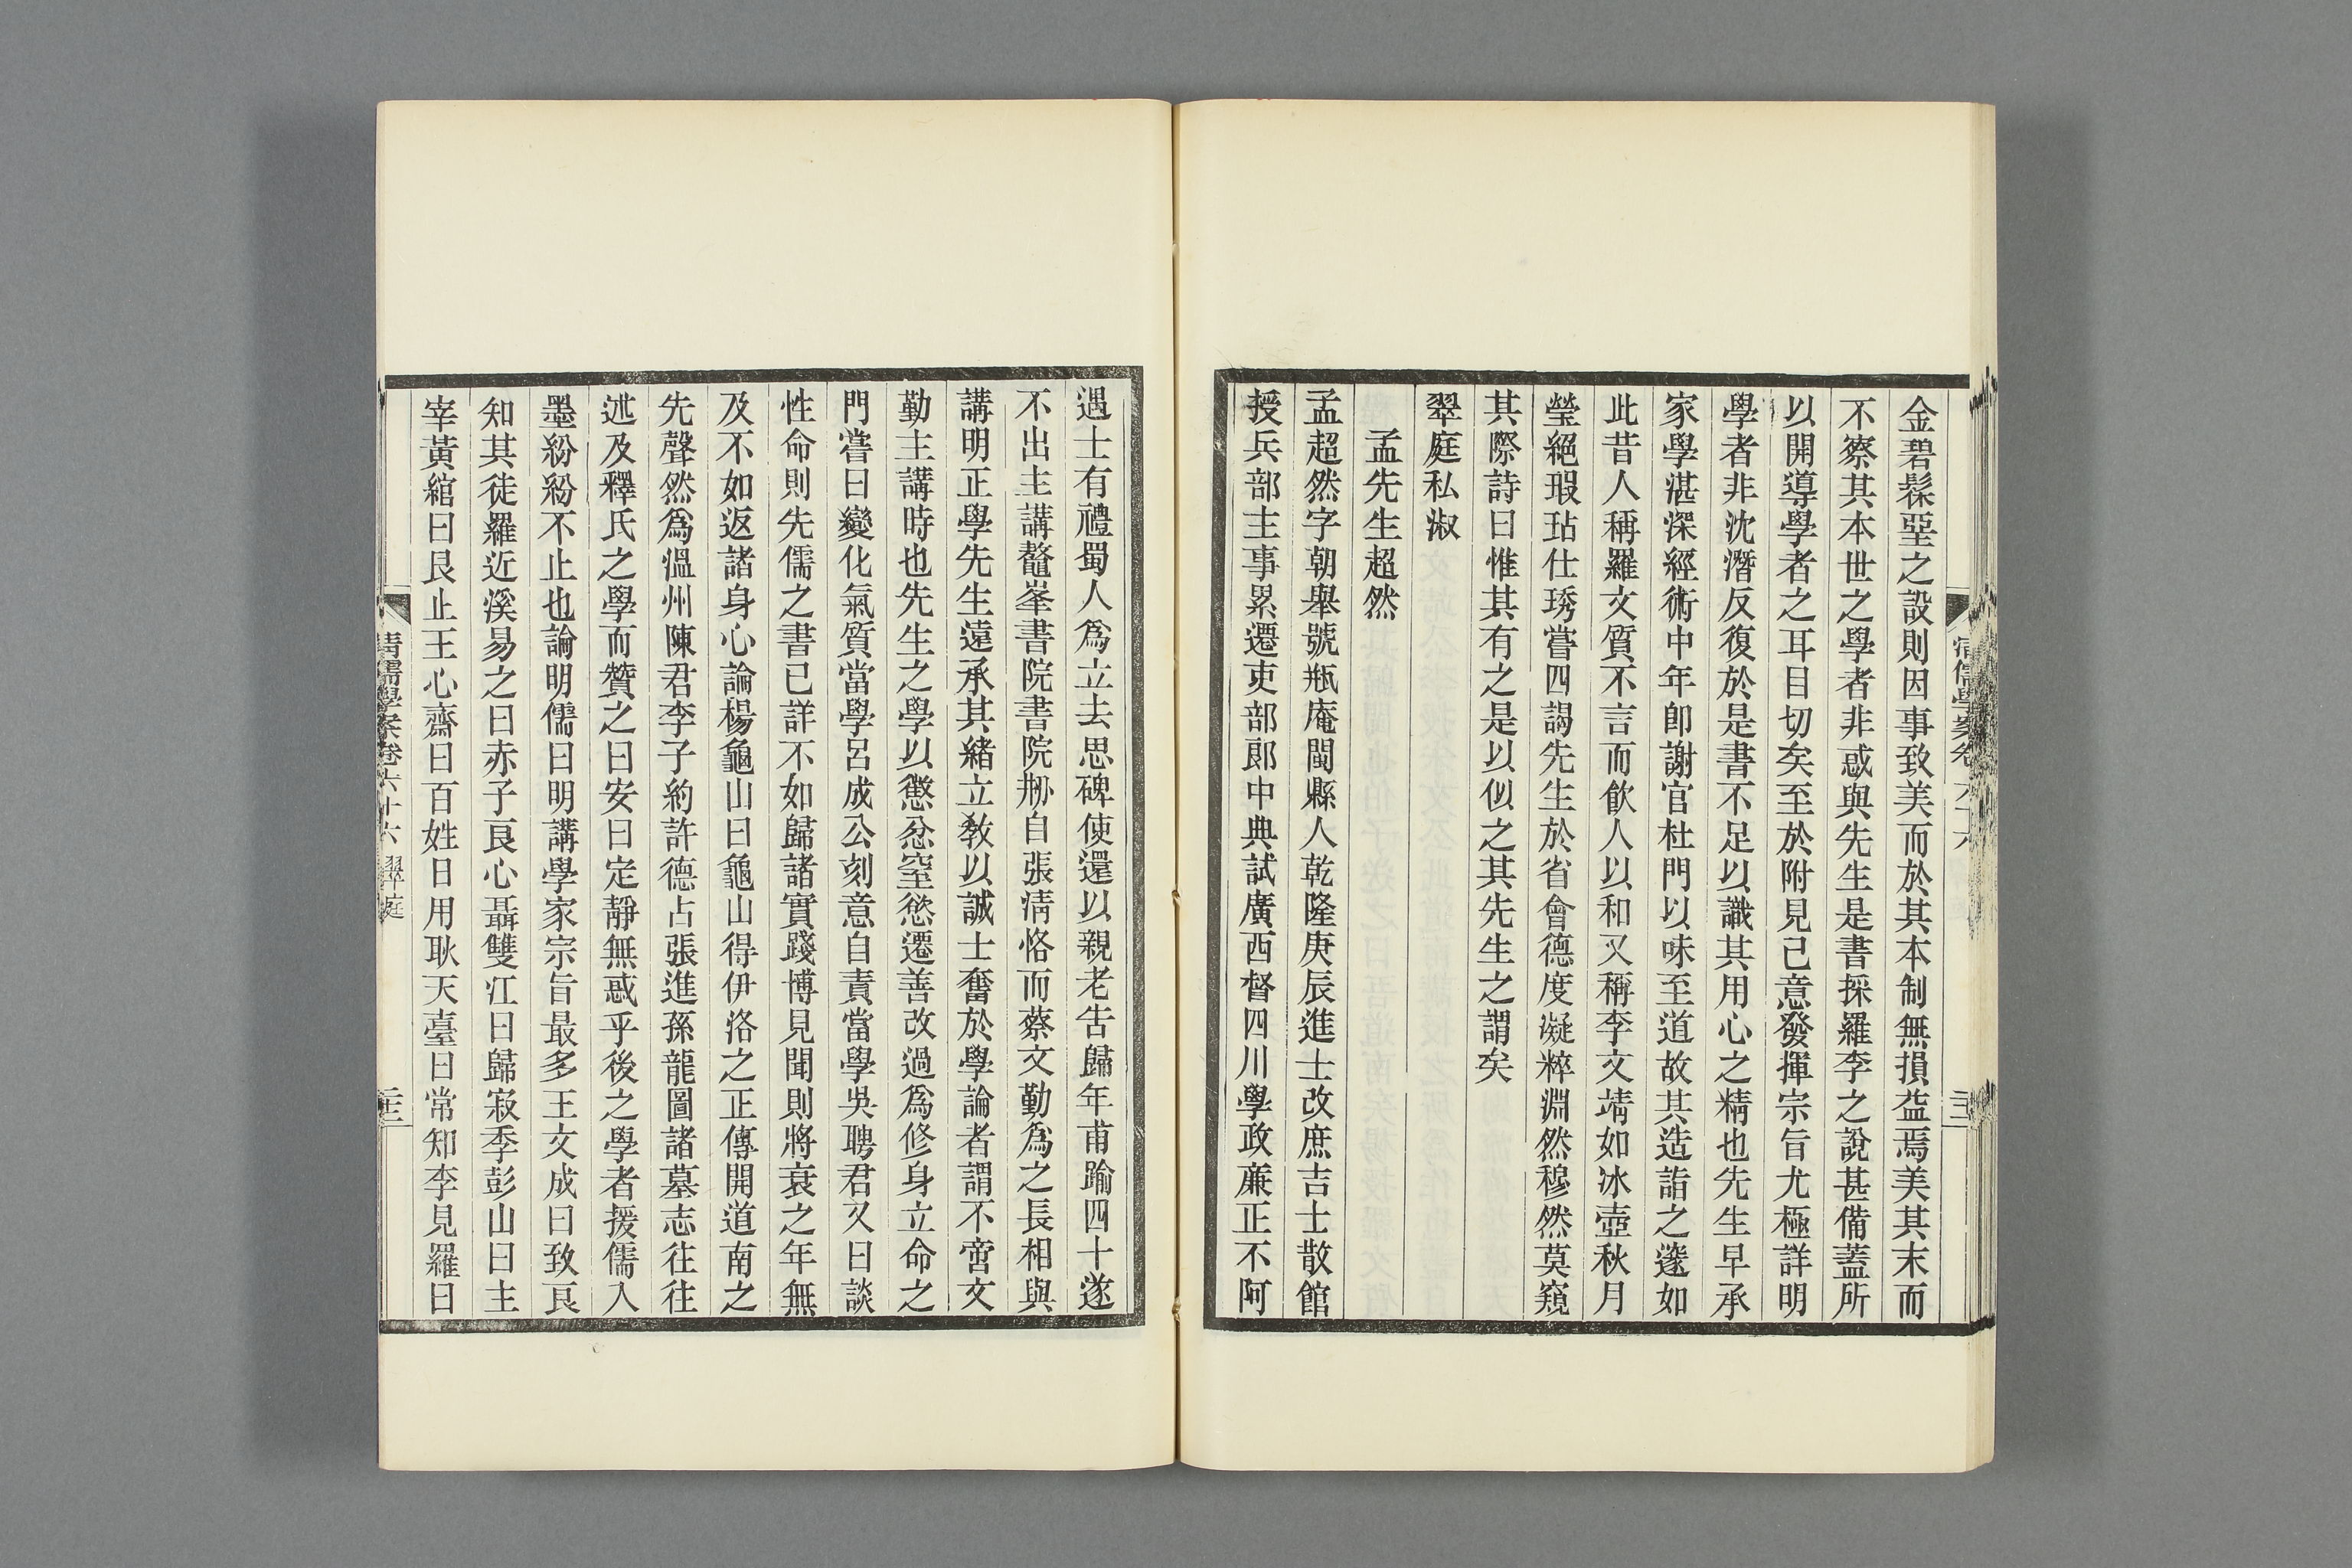 金碧髹堊之設則因事致美而於其本制無損益焉美其末而
不察其本世之學者非惑與先生是書採羅李之說甚備蓋所
以開導學者之耳目切矣至於附見己意發揮宗旨尤極詳明
學者非沈潛反復於是書不足以識其用心之精也先生早承
家學湛深經術中年卽謝官杜門以味至道故其造詣之邃如
此昔人稱羅文質不言而飮人以和又稱李文靖如冰壺秋月
瑩絕瑕玷仕琇嘗四謁先生於省會德度凝粹淵然穆然莫窺
其際詩曰惟其有之是以似之其先生之謂矣
翠庭私淑
孟先生超然
孟超然字朝舉號瓶庵閩縣人乾隆庚辰進士改庶吉士散館
授兵部主事累遷吏部郞中典試廣西督四川學政廉正不阿
遇士有禮蜀人爲立去思碑使還以親老吿歸年甫踰四十遂
不出主講鼇峯書院書院刱自張淸恪而蔡文勤爲之長相與
講明正學先生遠承其緖立敎以誠士奮於學論者謂不啻文
勤主講時也先生之學以懲忿窒慾遷善改過爲修身立命之
門嘗曰變化氣質當學呂成公刻意自責當學吳聘君又曰談
性命則先儒之書已詳不如歸諸實踐博見聞則將衰之年無
及不如返諸身心論楊龜山曰龜山得伊洛之正傳開道南之
先聲然爲溫州陳君李子約許德占張進孫龍圖諸墓志往往
述及釋氏之學而贊之曰安曰定靜無惑乎後之學者援儒入
墨紛紛不止也論明儒曰明講學家宗旨最多王文成曰致良
知其徒羅近溪易之曰赤子良心聶雙江曰歸寂季彭山曰主
宰黃綰曰艮止王心齋曰百姓日用耿天臺曰常知李見羅曰
清儒學案卷六十六 翠庭